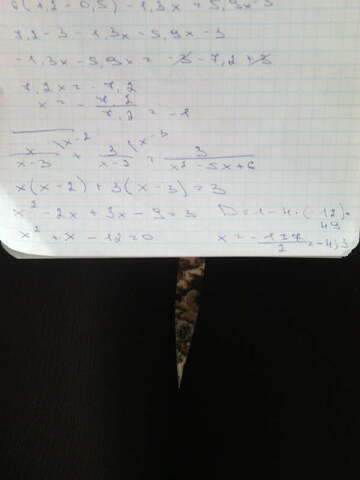 6(1,2-0,5)-1,3x = 5,9x-3
7,2-3-1,3x-5,9x-3
-1,3x-5,9x = -3-7,2+3
7,2x = -7,2
x = - 7,2/7,2 = -1
x/(x-3) \x-2 + 3/(x-3) \x-3 = 3/(x²-5x+6)
x(x-2)+3(x-3)=3
x²-2x+3x-9=3 D=1-4·(-12)=
49
x²+x-12=0 x = -1±7/2 = -4;3